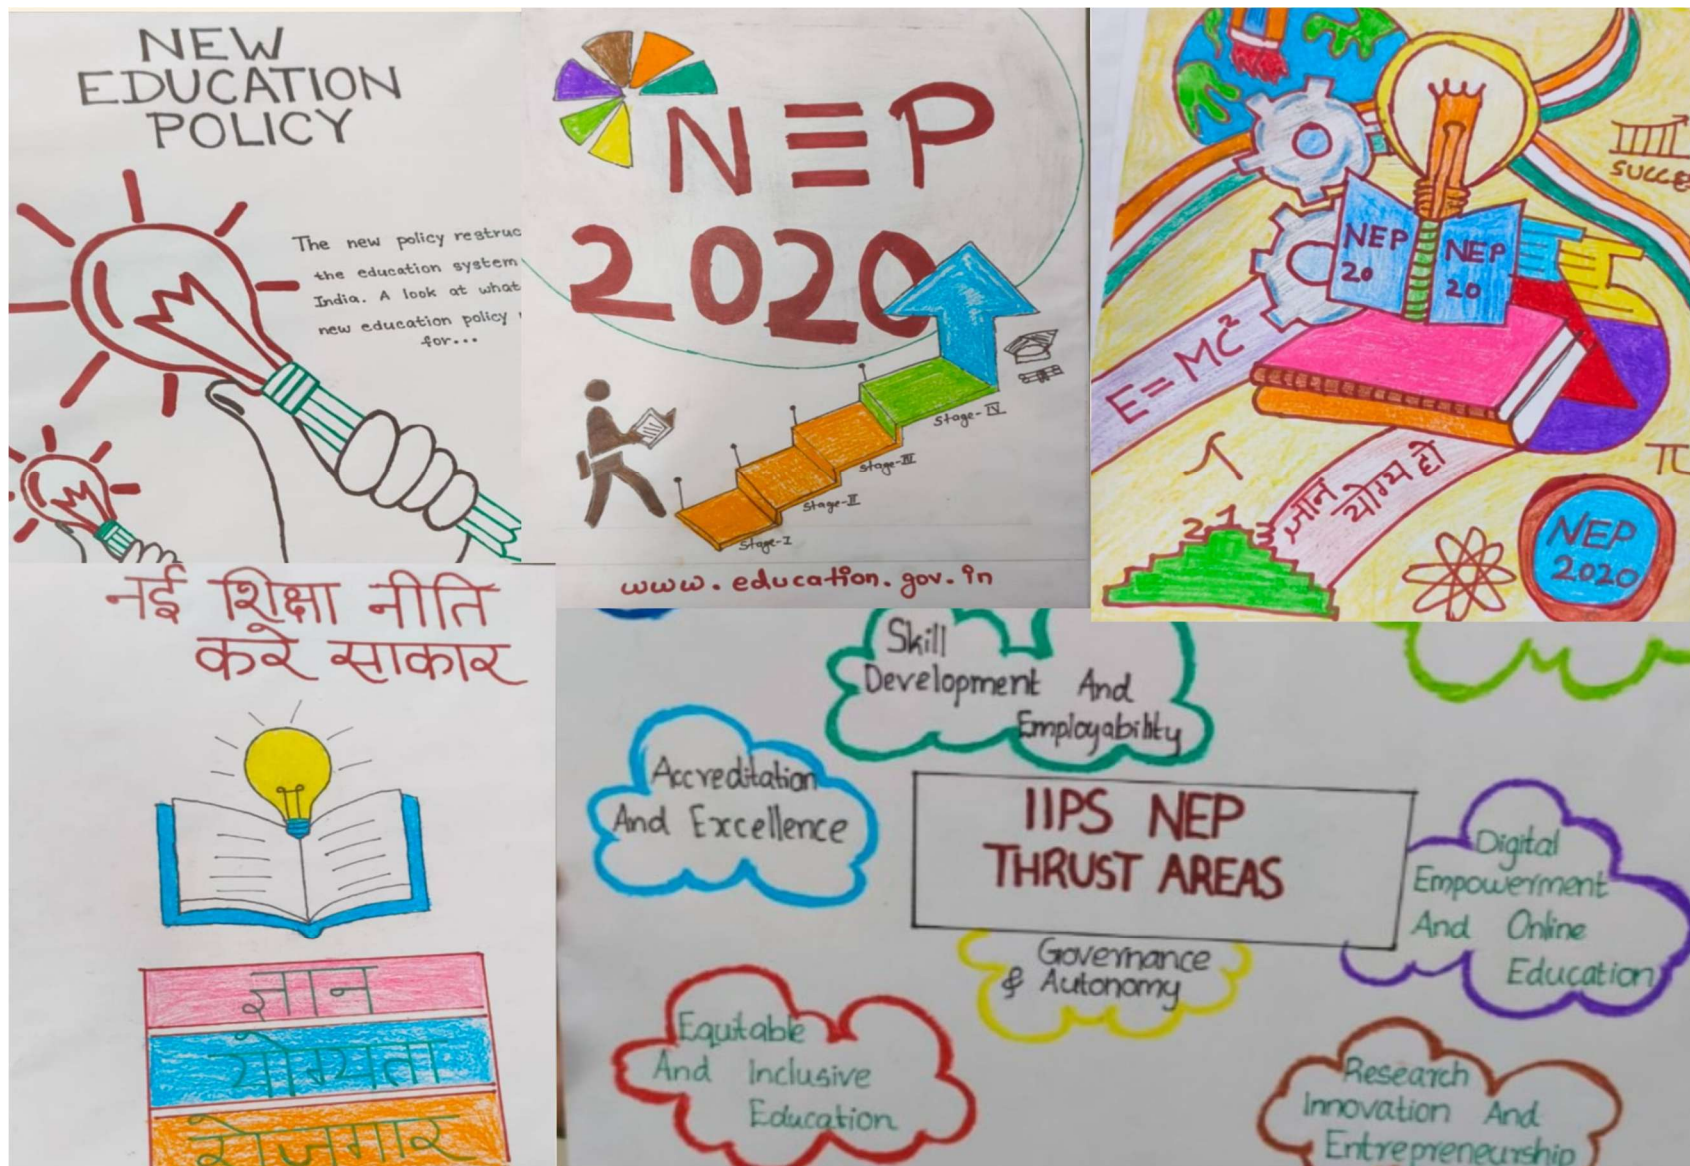 NEW
EDUCATION
POLICY
The new policy restruc
the education system
India. A look at what
new education policy
for...
NEP
2020
Stage-I
Stage-II
Stage-III
Stage-IV
www.education.gov.in
SUCCE
NEP
20
NEP
20
E=MC²
ज्ञान
योग्य हो
2 1 3
π
NEP
2020
नई शिक्षा नीति
करे साकार
ज्ञान
योग्यता
रोजगार
Skill
Development And
Employability
Accreditation
And Excellence
IIPS NEP
THRUST AREAS
Digital
Empowerment
And Online
Education
Governance
& Autonomy
Equitable
And Inclusive
Education
Research
Innovation And
Entrepreneurship